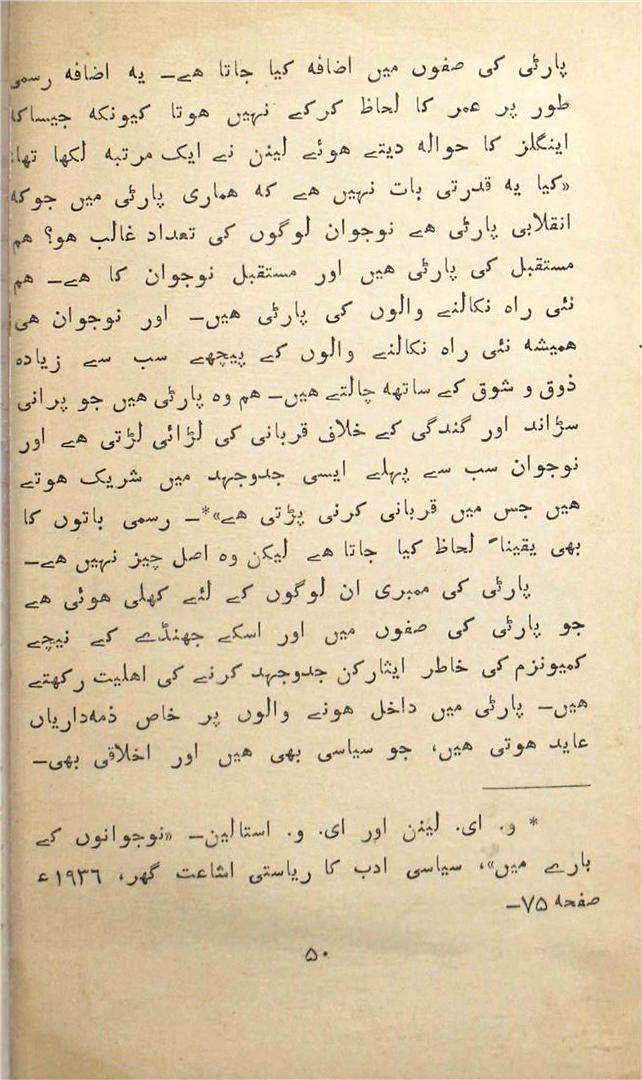 پارٹی کی صفوں میں اضافه کیا جاتا هے۔ یه اضافه رسمی
طور پر عمر کا لحاظ کرکے نہیں هوتا کیونکه جیساکه
اینگلز کا حواله دیتے هوئے لینن نے ایک مرتبه لکھا تھا:
«کیا یه قدرتی بات نہیں هے که هماری پارٹی میں جوکه
انقلابی پارٹی هے نوجوان لوگوں کی تعداد غالب هو؟ هم
مستقبل کی پارٹی هیں اور مستقبل نوجوان کا هے۔ هم
نئی راه نکالنے والوں کی پارٹی هیں۔ اور نوجوان هی
همیشه نئی راه نکالنے والوں کے پیچھے سب سے زیاده
ذوق و شوق کے ساتھ چالتے هیں۔ هم وه پارٹی هیں جو پرانی
سڑاند اور گندگی کے خلاف قربانی کی لڑائی لڑتی هے اور
نوجوان سب سے پہلے ایسی جدوجہد میں شریک هوتے
هیں جس میں قربانی کرنی پڑتی هے»*۔ رسمی باتوں کا
بھی یقیناً لحاظ کیا جاتا هے لیکن وه اصل چیز نہیں هے۔
پارٹی کی ممبری ان لوگوں کے لئے کھلی هوئی هے
جو پارٹی کی صفوں میں اور اسکے جھنڈے کے نیچے
کمیونزم کی خاطر ایثارکن جدوجہد کرنے کی اهلیت رکھتے
هیں۔ پارٹی میں داخل هونے والوں پر خاص ذمه‌داریاں
عاید هوتی هیں، جو سیاسی بھی هیں اور اخلاقی بھی۔
* و. ای. لینن اور ای. و. استالین۔ «نوجوانوں کے
بارے میں»، سیاسی ادب کا ریاستی اشاعت گھر، ۱۹۳۶ء
صفحه ۷۵۔
۵۰